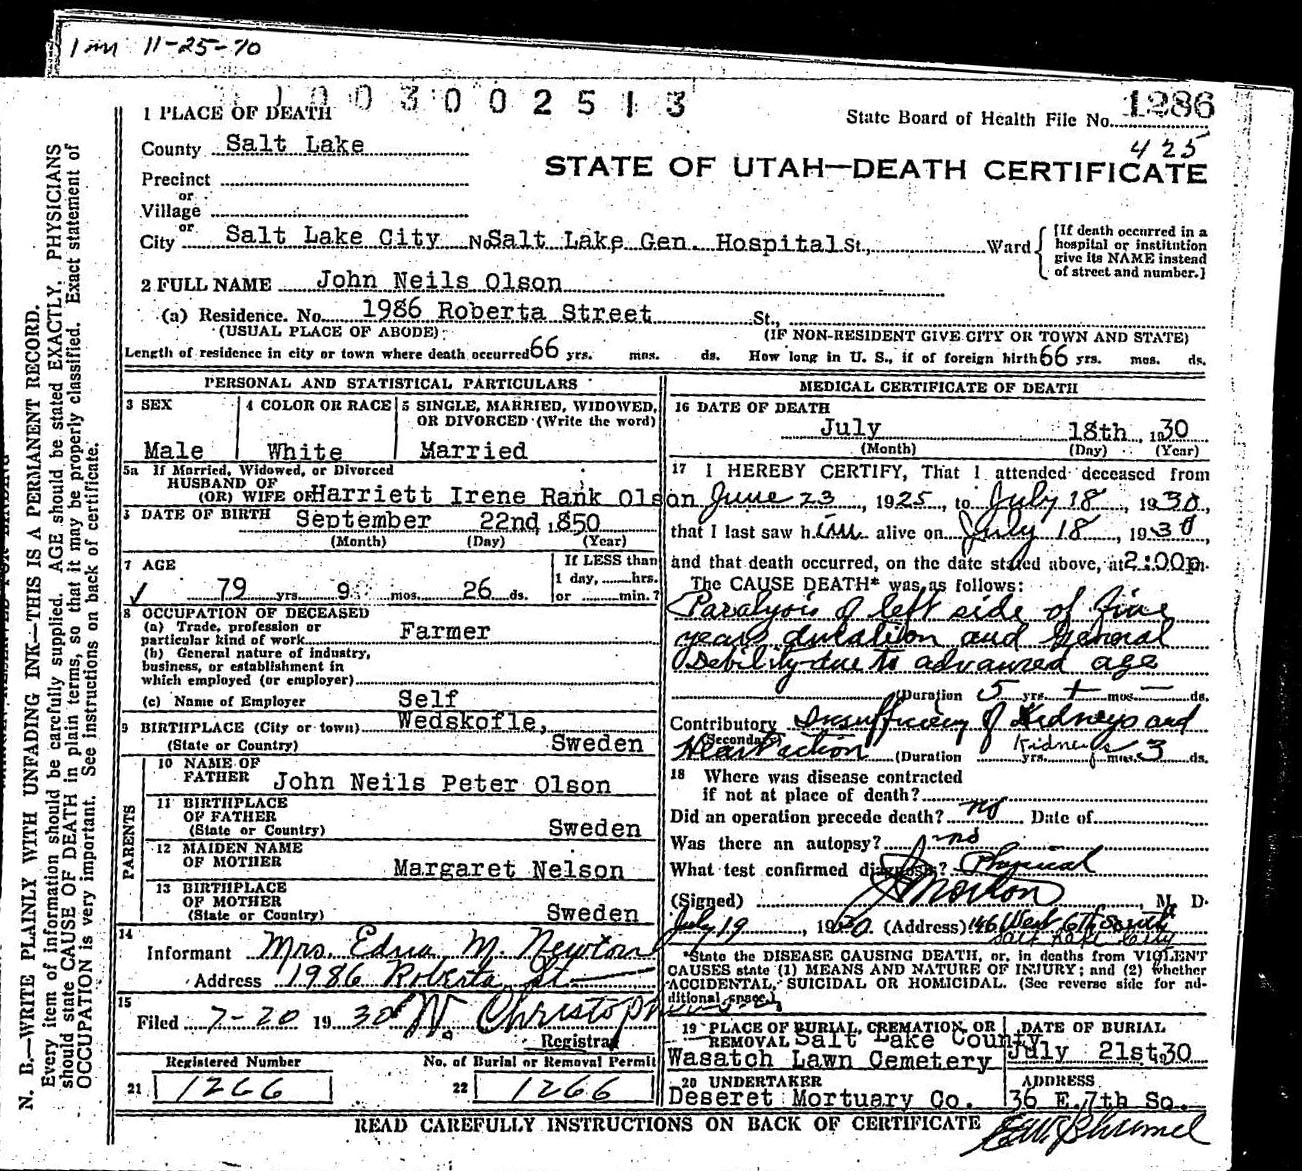 1 mm 11-25-70
1003002513
1286
1 PLACE OF DEATH
State Board of Health File No.
425
County Salt Lake
STATE OF UTAH—DEATH CERTIFICATE
Precinct
or
Village
or
City Salt Lake City No. Salt Lake Gen. Hospital St., Ward
[If death occurred in a
hospital or institution
give its NAME instead
of street and number.]
2 FULL NAME John Neils Olson
(a) Residence. No. 1986 Roberta Street St.,
(USUAL PLACE OF ABODE)
(IF NON-RESIDENT GIVE CITY OR TOWN AND STATE)
Length of residence in city or town where death occurred 66 yrs. mos. ds. How long in U. S., if of foreign birth 66 yrs. mos. ds.
PERSONAL AND STATISTICAL PARTICULARS
3 SEX
4 COLOR OR RACE
5 SINGLE, MARRIED, WIDOWED,
OR DIVORCED (Write the word)
Male White Married
5a If Married, Widowed, or Divorced
HUSBAND OF
(OR) WIFE OF Harriett Irene Rank Olson
DATE OF BIRTH September 22nd, 1850
(Month) (Day) (Year)
7 AGE
If LESS than
1 day, hrs.
or min.?
✓ 79 yrs. 9 mos. 26 ds.
8 OCCUPATION OF DECEASED
(a) Trade, profession or
particular kind of work Farmer
(b) General nature of industry,
business, or establishment in
which employed (or employer)
(c) Name of Employer Self
9 BIRTHPLACE (City or town) Wedskofle,
(State or Country) Sweden
PARENTS
10 NAME OF
FATHER John Neils Peter Olson
11 BIRTHPLACE
OF FATHER
(State or Country) Sweden
12 MAIDEN NAME
OF MOTHER Margaret Nelson
13 BIRTHPLACE
OF MOTHER
(State or Country) Sweden
14
Informant Mrs. Edna M. Newton
Address 1986 Roberta St.
15
Filed 7-20 1930 W. Christoph
Registrar
Registered Number
No. of Burial or Removal Permit
21 1266
22 1266
MEDICAL CERTIFICATE OF DEATH
16 DATE OF DEATH
July 18th, 1930
(Month) (Day) (Year)
17 I HEREBY CERTIFY, That I attended deceased from
June 23, 1925, to July 18, 1930,
that I last saw him alive on July 18, 1930,
and that death occurred, on the date stated above, at 2:00p m.
The CAUSE DEATH* was as follows:
Paralysis of left side of five
years duration and General
Debility due to advanced age
(Duration 5 yrs. + mos. — ds.
Contributory Insufficiency of Kidneys and
(Secondary)
Heart action (Duration Kidneys yrs. mos. 3 ds.
18 Where was disease contracted
if not at place of death?
Did an operation precede death? no Date of
Was there an autopsy? no
What test confirmed diagnosis? Physical
(Signed) Morton, M. D.
July 19, 1930. (Address) 146 West 6th South
Salt Lake City
*State the DISEASE CAUSING DEATH, or, in deaths from VIOLENT
CAUSES state (1) MEANS AND NATURE OF INJURY; and (2) whether
ACCIDENTAL, SUICIDAL OR HOMICIDAL. (See reverse side for ad-
ditional space.)
19 PLACE OF BURIAL, CREMATION, OR
REMOVAL Salt Lake County
Wasatch Lawn Cemetery
DATE OF BURIAL
July 21st, 30
20 UNDERTAKER
Deseret Mortuary Co.
ADDRESS
36 E. 7th So.
READ CAREFULLY INSTRUCTIONS ON BACK OF CERTIFICATE
N. B.—WRITE PLAINLY WITH UNFADING INK—THIS IS A PERMANENT RECORD.
Every item of information should be carefully supplied. AGE should be stated EXACTLY. PHYSICIANS
should state CAUSE OF DEATH in plain terms, so that it may be properly classified. Exact statement of
OCCUPATION is very important. See instructions on back of certificate.